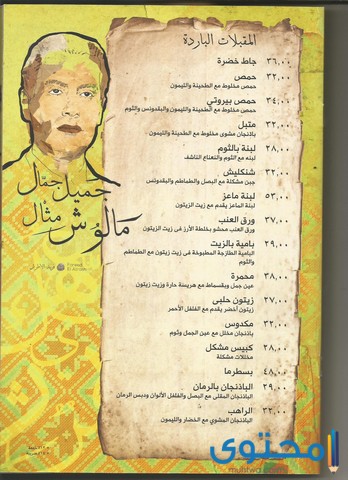 المقبلات الباردة
جاط خضرة ٣٦,٠٠
حمص ٣٢,٠٠
حمص مخلوط مع الطحينة والليمون
حمص بيروتي ٣٤,٠٠
حمص مخلوط مع الطحينة والليمون والبقدونس والثوم
متبل ٣٢,٠٠
باذنجان مشوى مخلوط مع الطحينة والليمون
لبنة بالثوم ٢٨,٠٠
لبنه مع الثوم والنعناع الناشف
شنكليش ٣٢,٠٠
جبن مشكلة مع البصل والطماطم والبقدونس
لبنة ماعز ٥٣,٠٠
لبنة الماعز يقدم مع زيت الزيتون
ورق العنب ٣٧,٠٠
ورق العنب محشو بخلطة الأرز فى زيت الزيتون
بامية بالزيت ٢٩,٠٠
البامية الطازجة المطبوخة فى زيت الزيتون مع الطماطم
والثوم
محمرة ٣٨,٠٠
عين جمل وبقسماط مع هريسة حارة وزيت زيتون
زيتون حلبى ٢٧,٠٠
زيتون أخضر يقدم مع الفلفل الأحمر
مكدوس ٣٢,٠٠
باذنجان مخلل مع عين الجمل وثوم
كبيس مشكل ٢٨,٠٠
مخللات مشكلة
بسطرما ٤٨,٠٠
الباذنجان بالرمان ٢٩,٠٠
الباذنجان المقلى مع البصل والفلفل الألوان ودبس الرمان
الراهب ٣٢,٠٠
الباذنجان المشوي مع الخضار والليمون
جميل جمال
مالوش مثال
محتوى
muhtwa.com